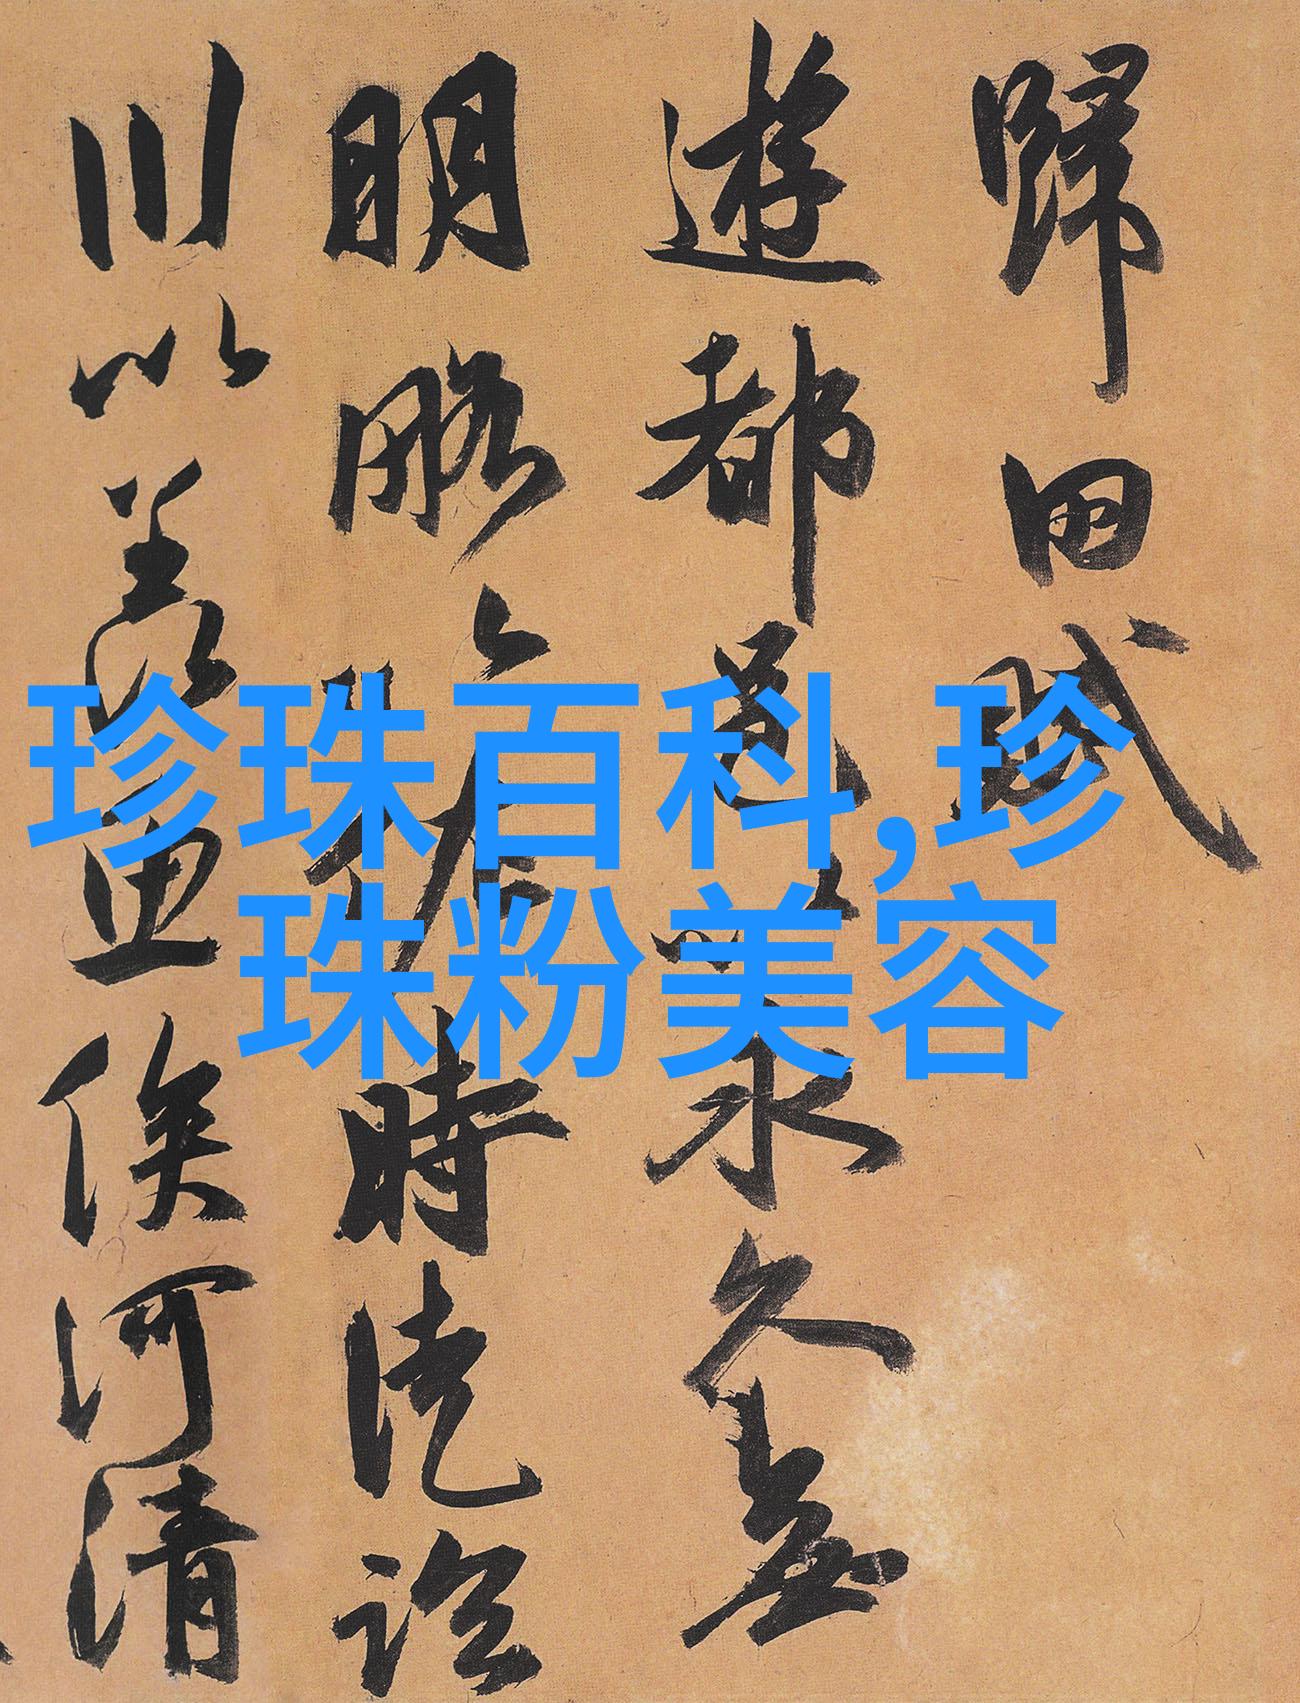 歸田賦
遊都邑以永久無
明略以佐時徒臨
川以羨魚俟河清
珍珠百科,珍
珠粉美容